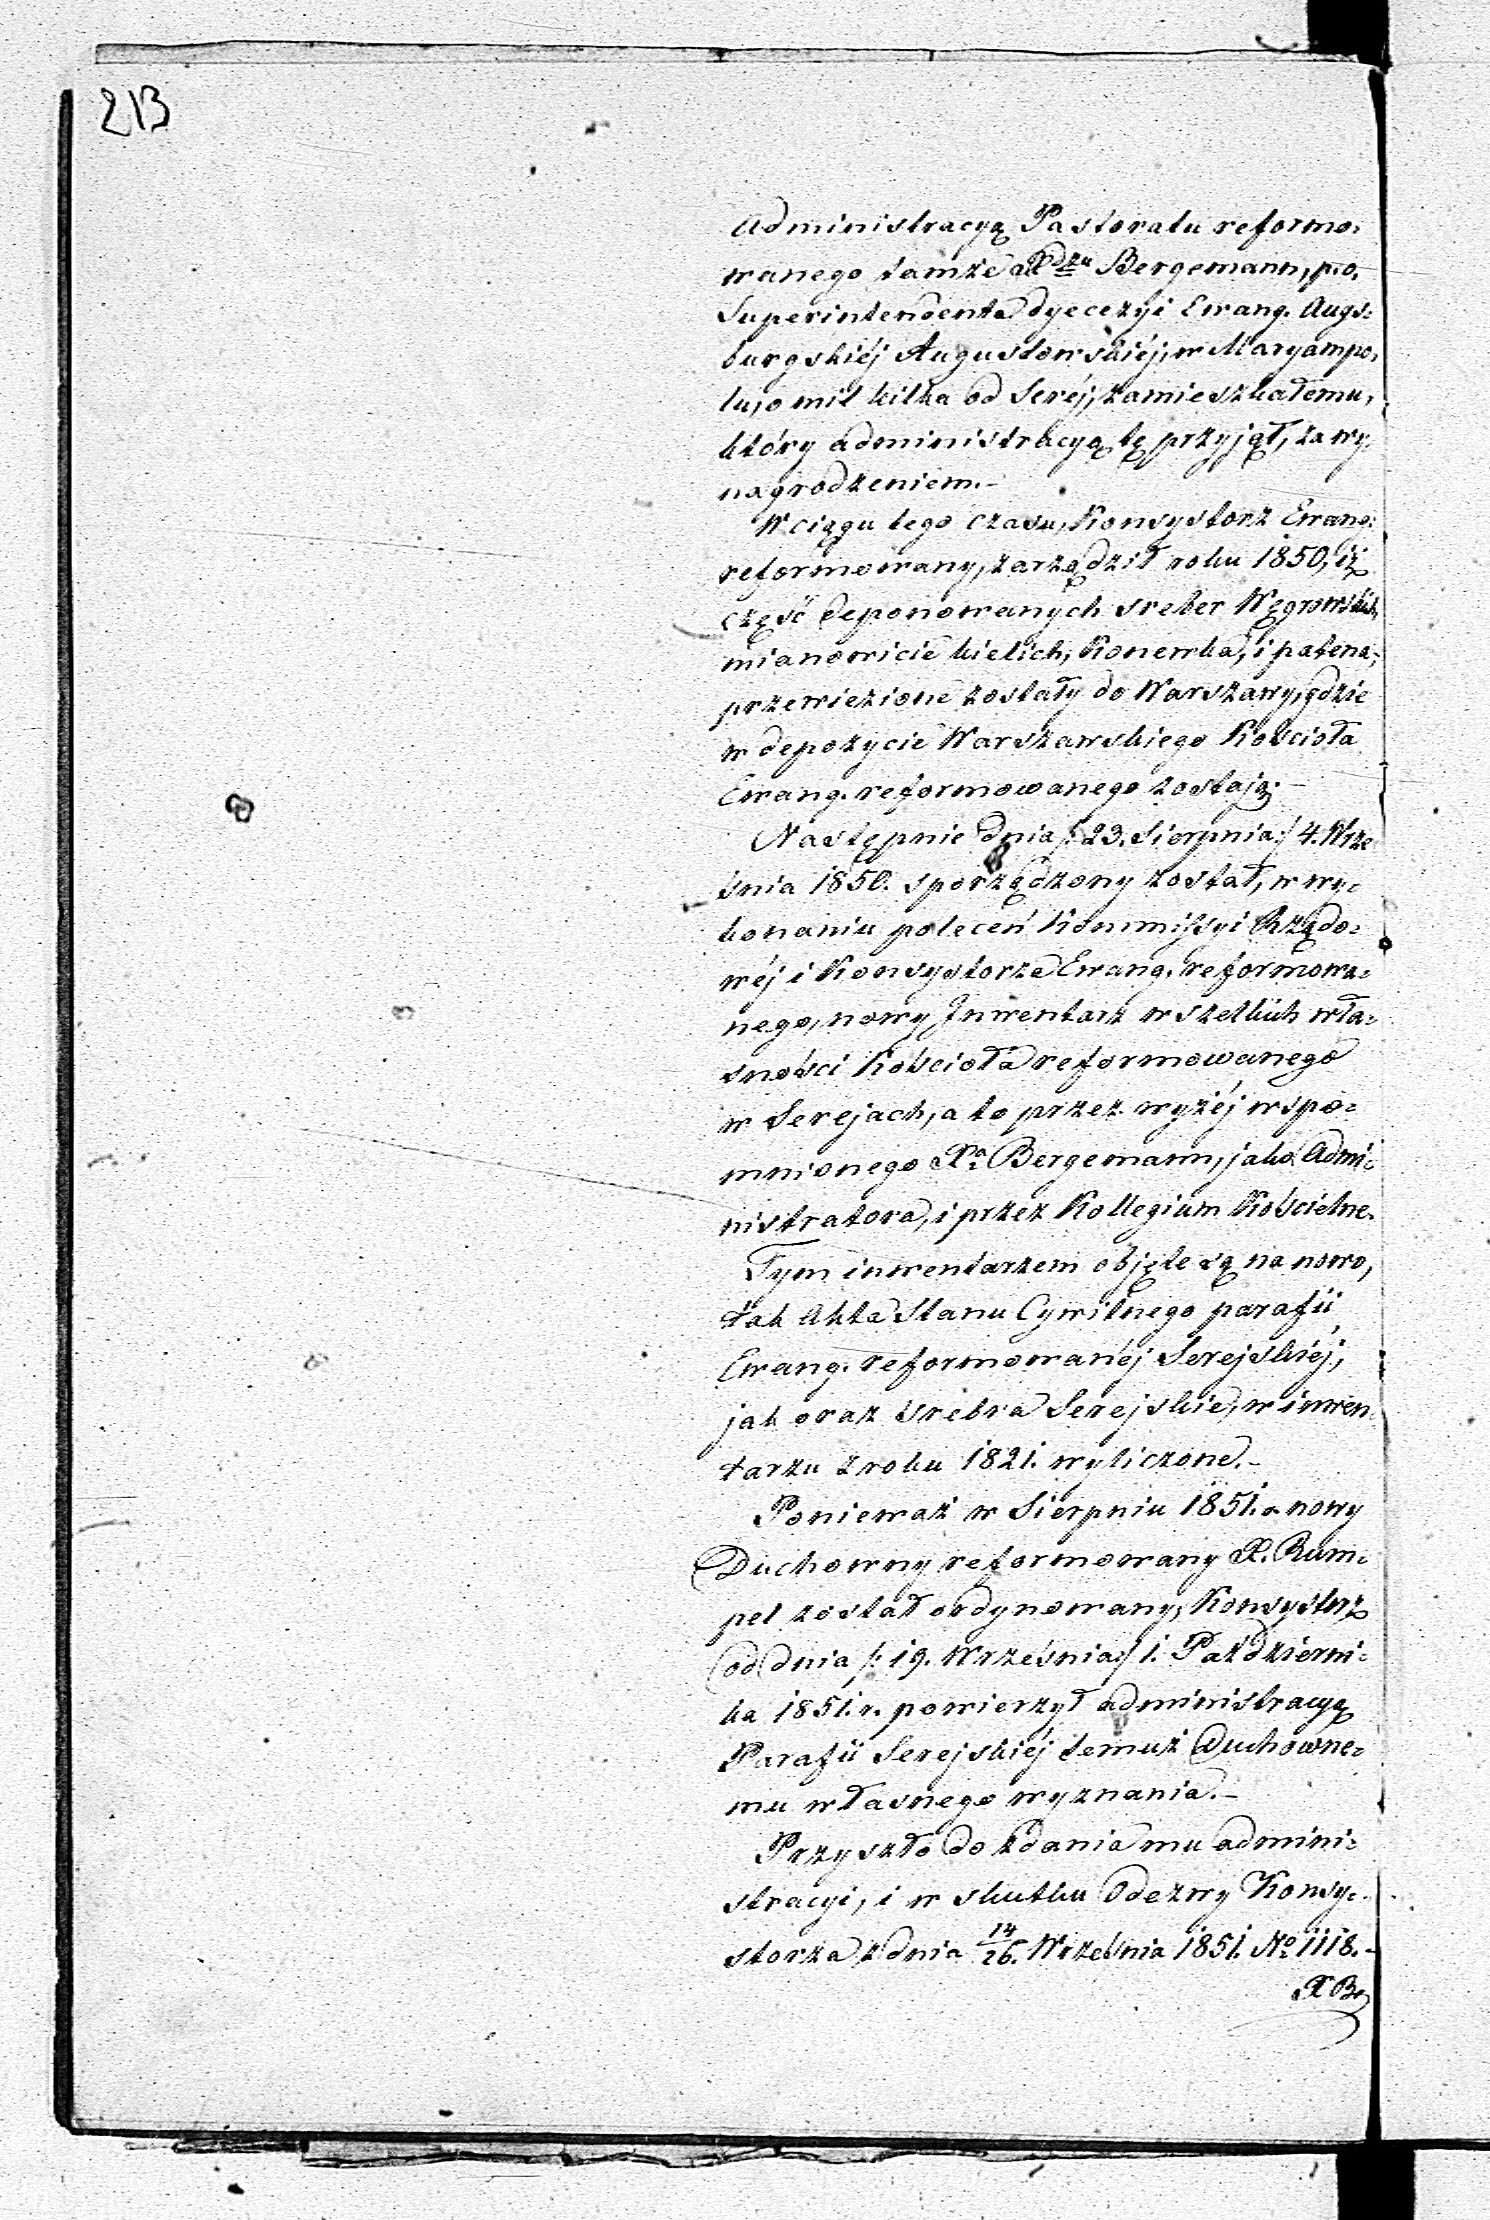 213
Administracyą Pastoratu reformo=
wanego tamże Xdzu Bergemann, p.o.
Superintendenta dyecezyi Ewang. Augs=
burgskiéj Augustowskiéj, w Maryampo=
lu, o mil kilka od Seréj, zamieszkałemu,
który administracyą tę przyjął, za wy=
nagrodzeniem.-
W ciągu tego czasu, Konsystorz Ewang:
reformowany, zarządził roku 1850, iż
część deponowanych sreber Węgrowskich,
mianowicie kielich, Konewka, i patena,
przewiezione zostały do Warszawy, gdzie
w depozycie Warszawskiego Kościoła
Ewang. reformowanego zostają.-
Następnie dnia /: 23. Sierpnia :/ 4. Wrze
śnia 1850. sporządzony został, w wy=
konaniu poleceń Kommissyi Rządo=
wéj i Konsystorza Ewang. reformowa=
nego, nowy Inwentarz wszelkich wła=
sności Kościoła reformowanego
w Serejach, a to przez wyżéj wspo=
mnionego Xa Bergemann, jako Admi=
nistratora, i przez Kollegium Kościelne.
Tym inwentarzem objęte są na nowo,
tak Akta Stanu Cywilnego parafii
Ewang. reformowanéj Serejskiéj,
jak oraz srebra Serejskie, w inwen=
tarzu z roku 1821. wyliczone.-
Ponieważ w Sierpniu 1851. r. nowy
Duchowny reformowany X. Rum=
pel został ordynowany, Konsystorz
od dnia /: 19. Września :/ 1. Październi=
ka 1851. r. powierzył administracyą
Parafii Serejskiéj temuż Duchowne=
mu własnego wyznania.-
Przyszło do zdania mu admini=
stracyi, i w skutku Odezwy Konsy=
storza z dnia 14/26. Września 1851. No 1118.-
X Be